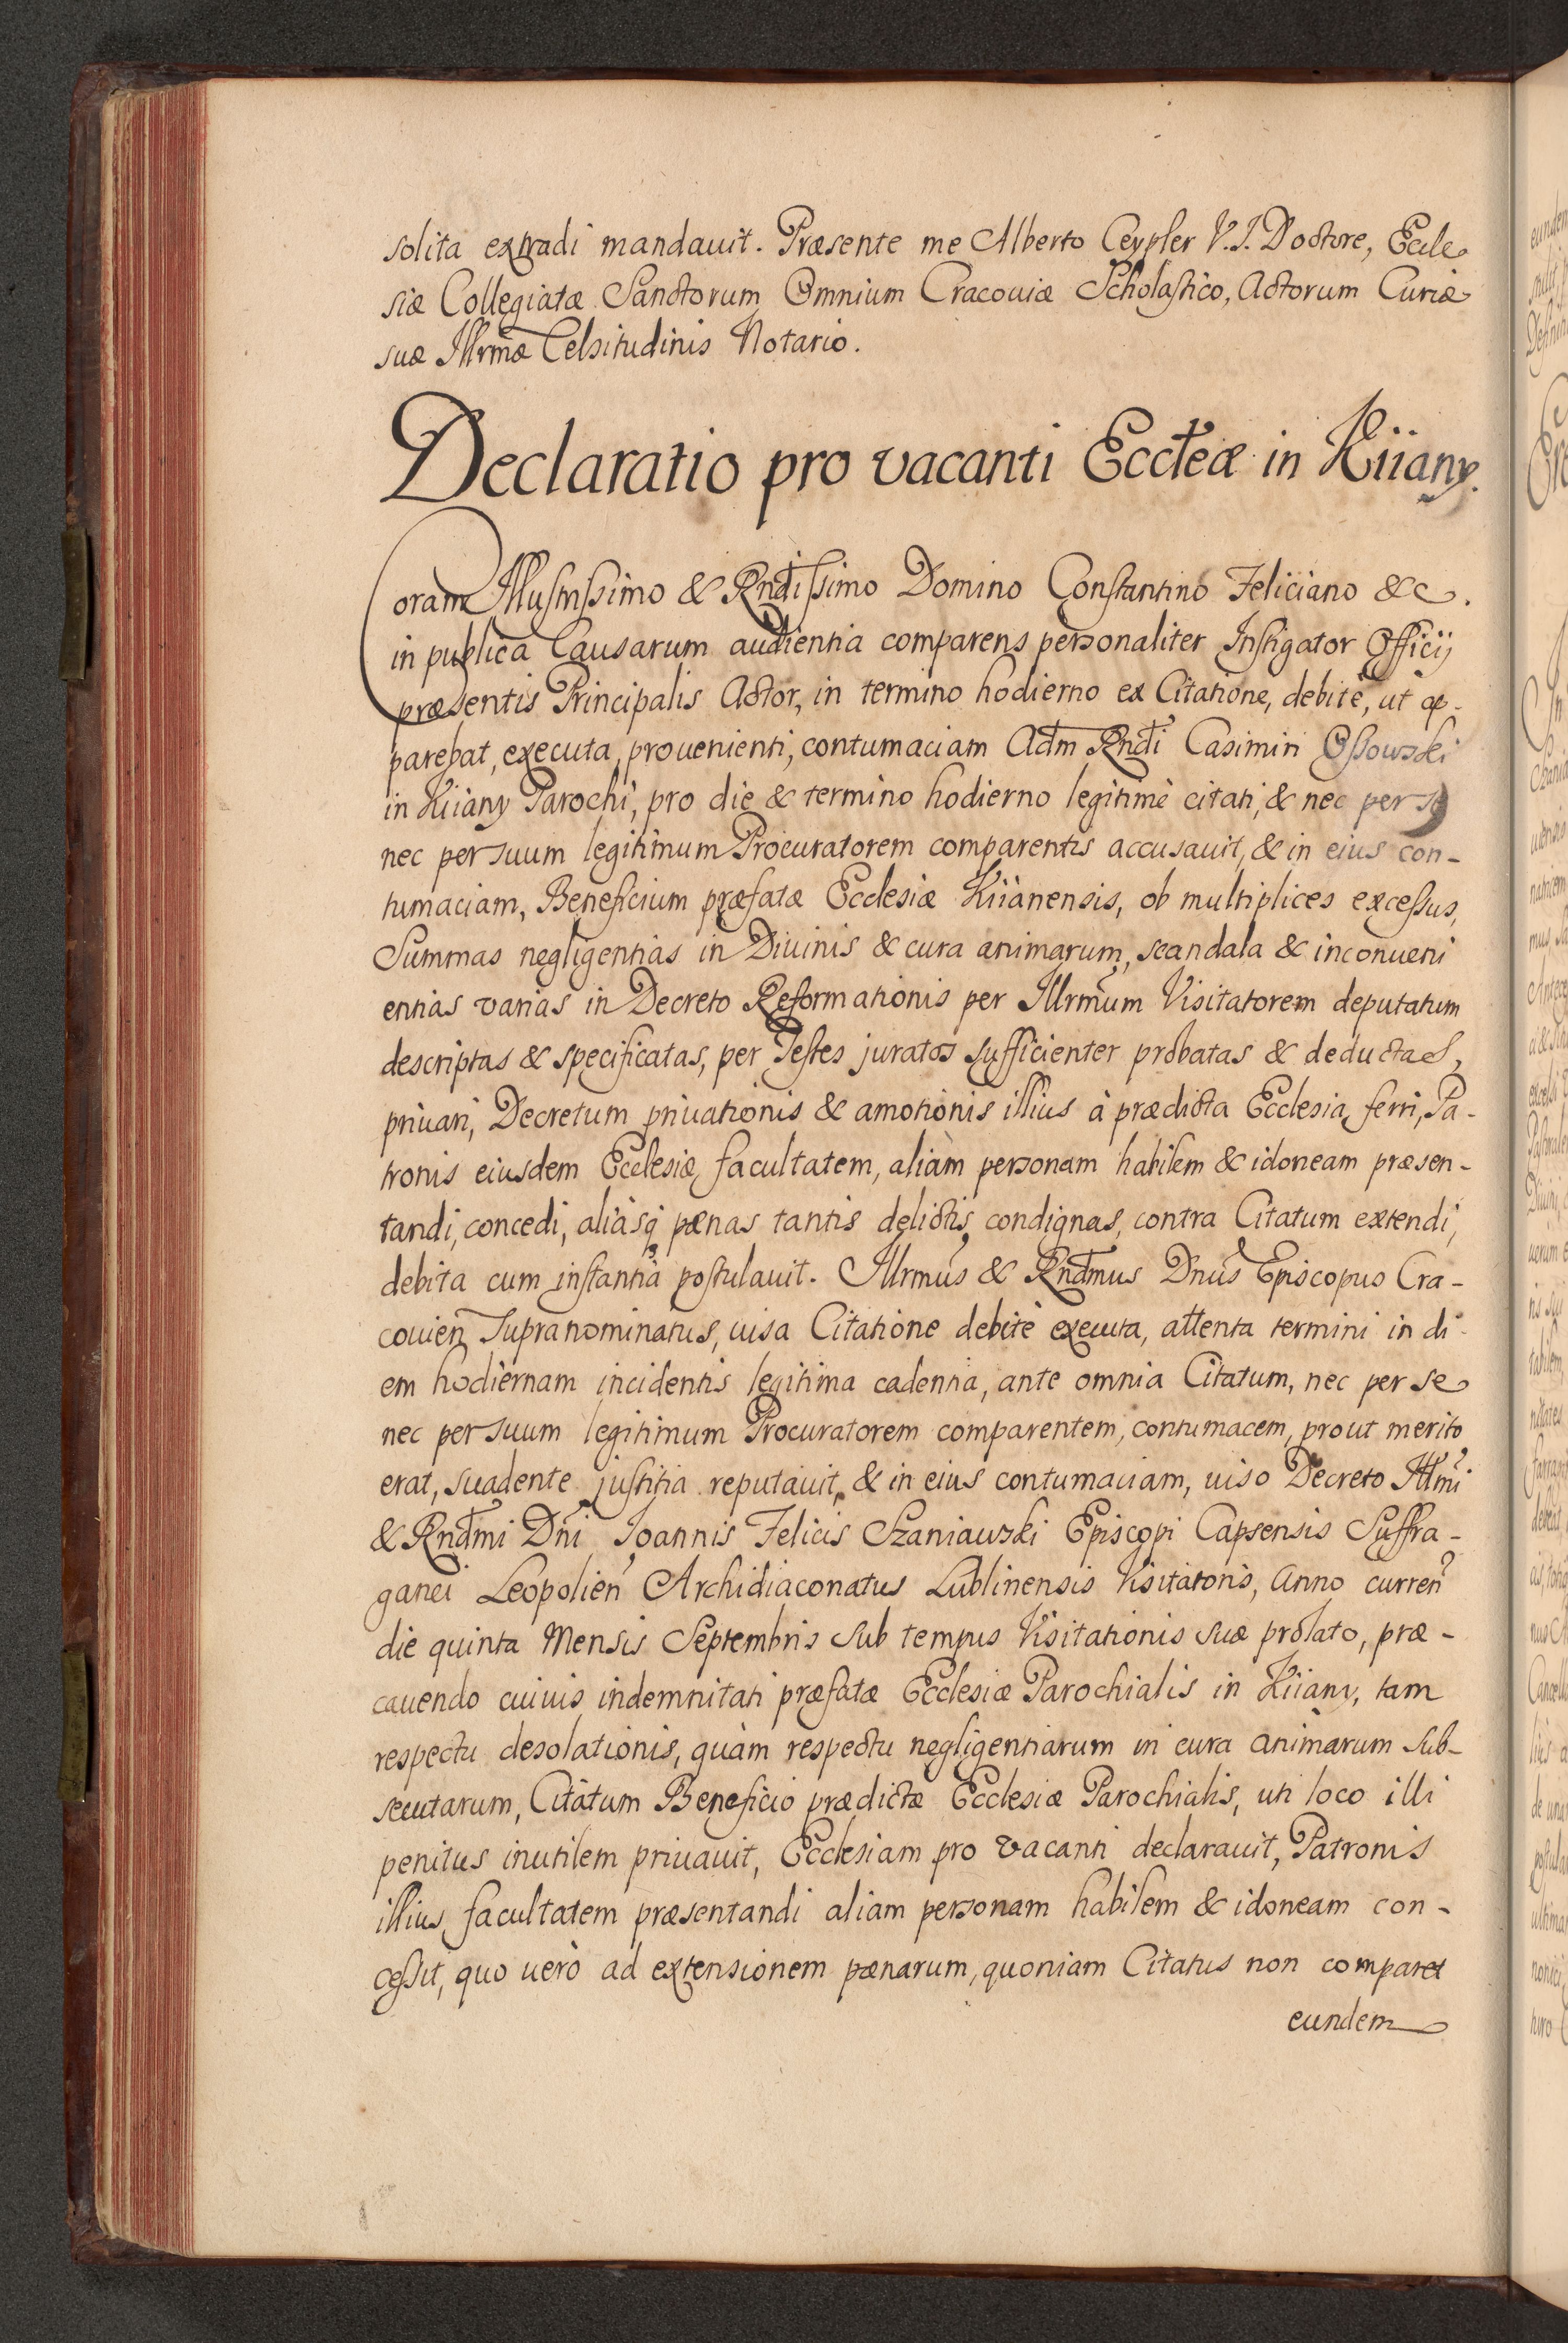 solita extradi mandauit. Præsente me Alberto Ceypler V.I. Doctore, Eccle
siæ Collegiatæ Sanctorum Omnium Cracouiæ Scholastico, Actorum Curiæ
suæ Illrmæ Celsitudinis Notario.
Declaratio pro vacanti Eccłeæ in Kiiany.
Coram Illustrissimo & Rndissimo Domino Constantino Feliciano &c.
in publica Causarum audientia comparens personaliter Instigator Officij
præsentis Principalis Actor, in termino hodierno ex Citatione, debitè, ut ap-
parebat, executa, prouenienti, contumaciam Adm Rndi Casimiri Ossowski
in Kiiany Parochi, pro die & termino hodierno legitimè citati, & nec per se
nec per suum legitimum Procuratorem comparentis accusauit, & in eius con-
tumaciam, Beneficium præfatæ Ecclesiæ Kiianensis, ob multiplices excessus,
Summas negligentias in Diuinis & cura animarum, scandala & inconueni
entias varias in Decreto Reformationis per Illrmum Visitatorem deputatum
descriptas & specificatas, per Testes juratos sufficienter probatas & deductas,
priuari, Decretum priuationis & amotionis illius à prædicta Ecclesia ferri, Pa-
tronis eiusdem Ecclesiæ facultatem, aliàm personam habilem & idoneam præsen-
tandi, concedi, aliàsq pænas tantis delictis condignas, contra Citatum extendi,
debita cum instantia postulauit. Illrmus & Rndmus Dnus Episcopus Cra-
couien Supranominatus, uisa Citatione debitè executa, attenta termini in di-
em hodiernam incidentis legitima cadentia, ante omnia Citatum, nec per se
nec per suum legitimum Procuratorem comparentem, contumacem, prout merito
erat, suadente justitia reputauit, & in eius contumaciam, uiso Decreto Illmi
& Rndmi Dni Ioannis Felicis Szaniawski Episcopi Capsensis Suffra-
ganei Leopolien Archidiaconatus Lublinensis Visitatoris, Anno curren
die quinta Mensis Septembris sub tempus Visitationis suæ prolato, præ-
cauendo cuiuis indemnitati præfatæ Ecclesiæ Parochialis in Kiiany, tam
respectu desolationis, quàm respectu negligentiarum in cura animarum sub-
secutarum, Citatum Beneficio prædictæ Ecclesiæ Parochialis, uti loco illi
penitus inutilem priuauit, Ecclesiam pro vacanti declarauit, Patronis
illius facultatem præsentandi aliam personam habilem & idoneam con-
cessit, quo uerò ad extensionem pænarum, quoniam Citatus non comparet
eundem